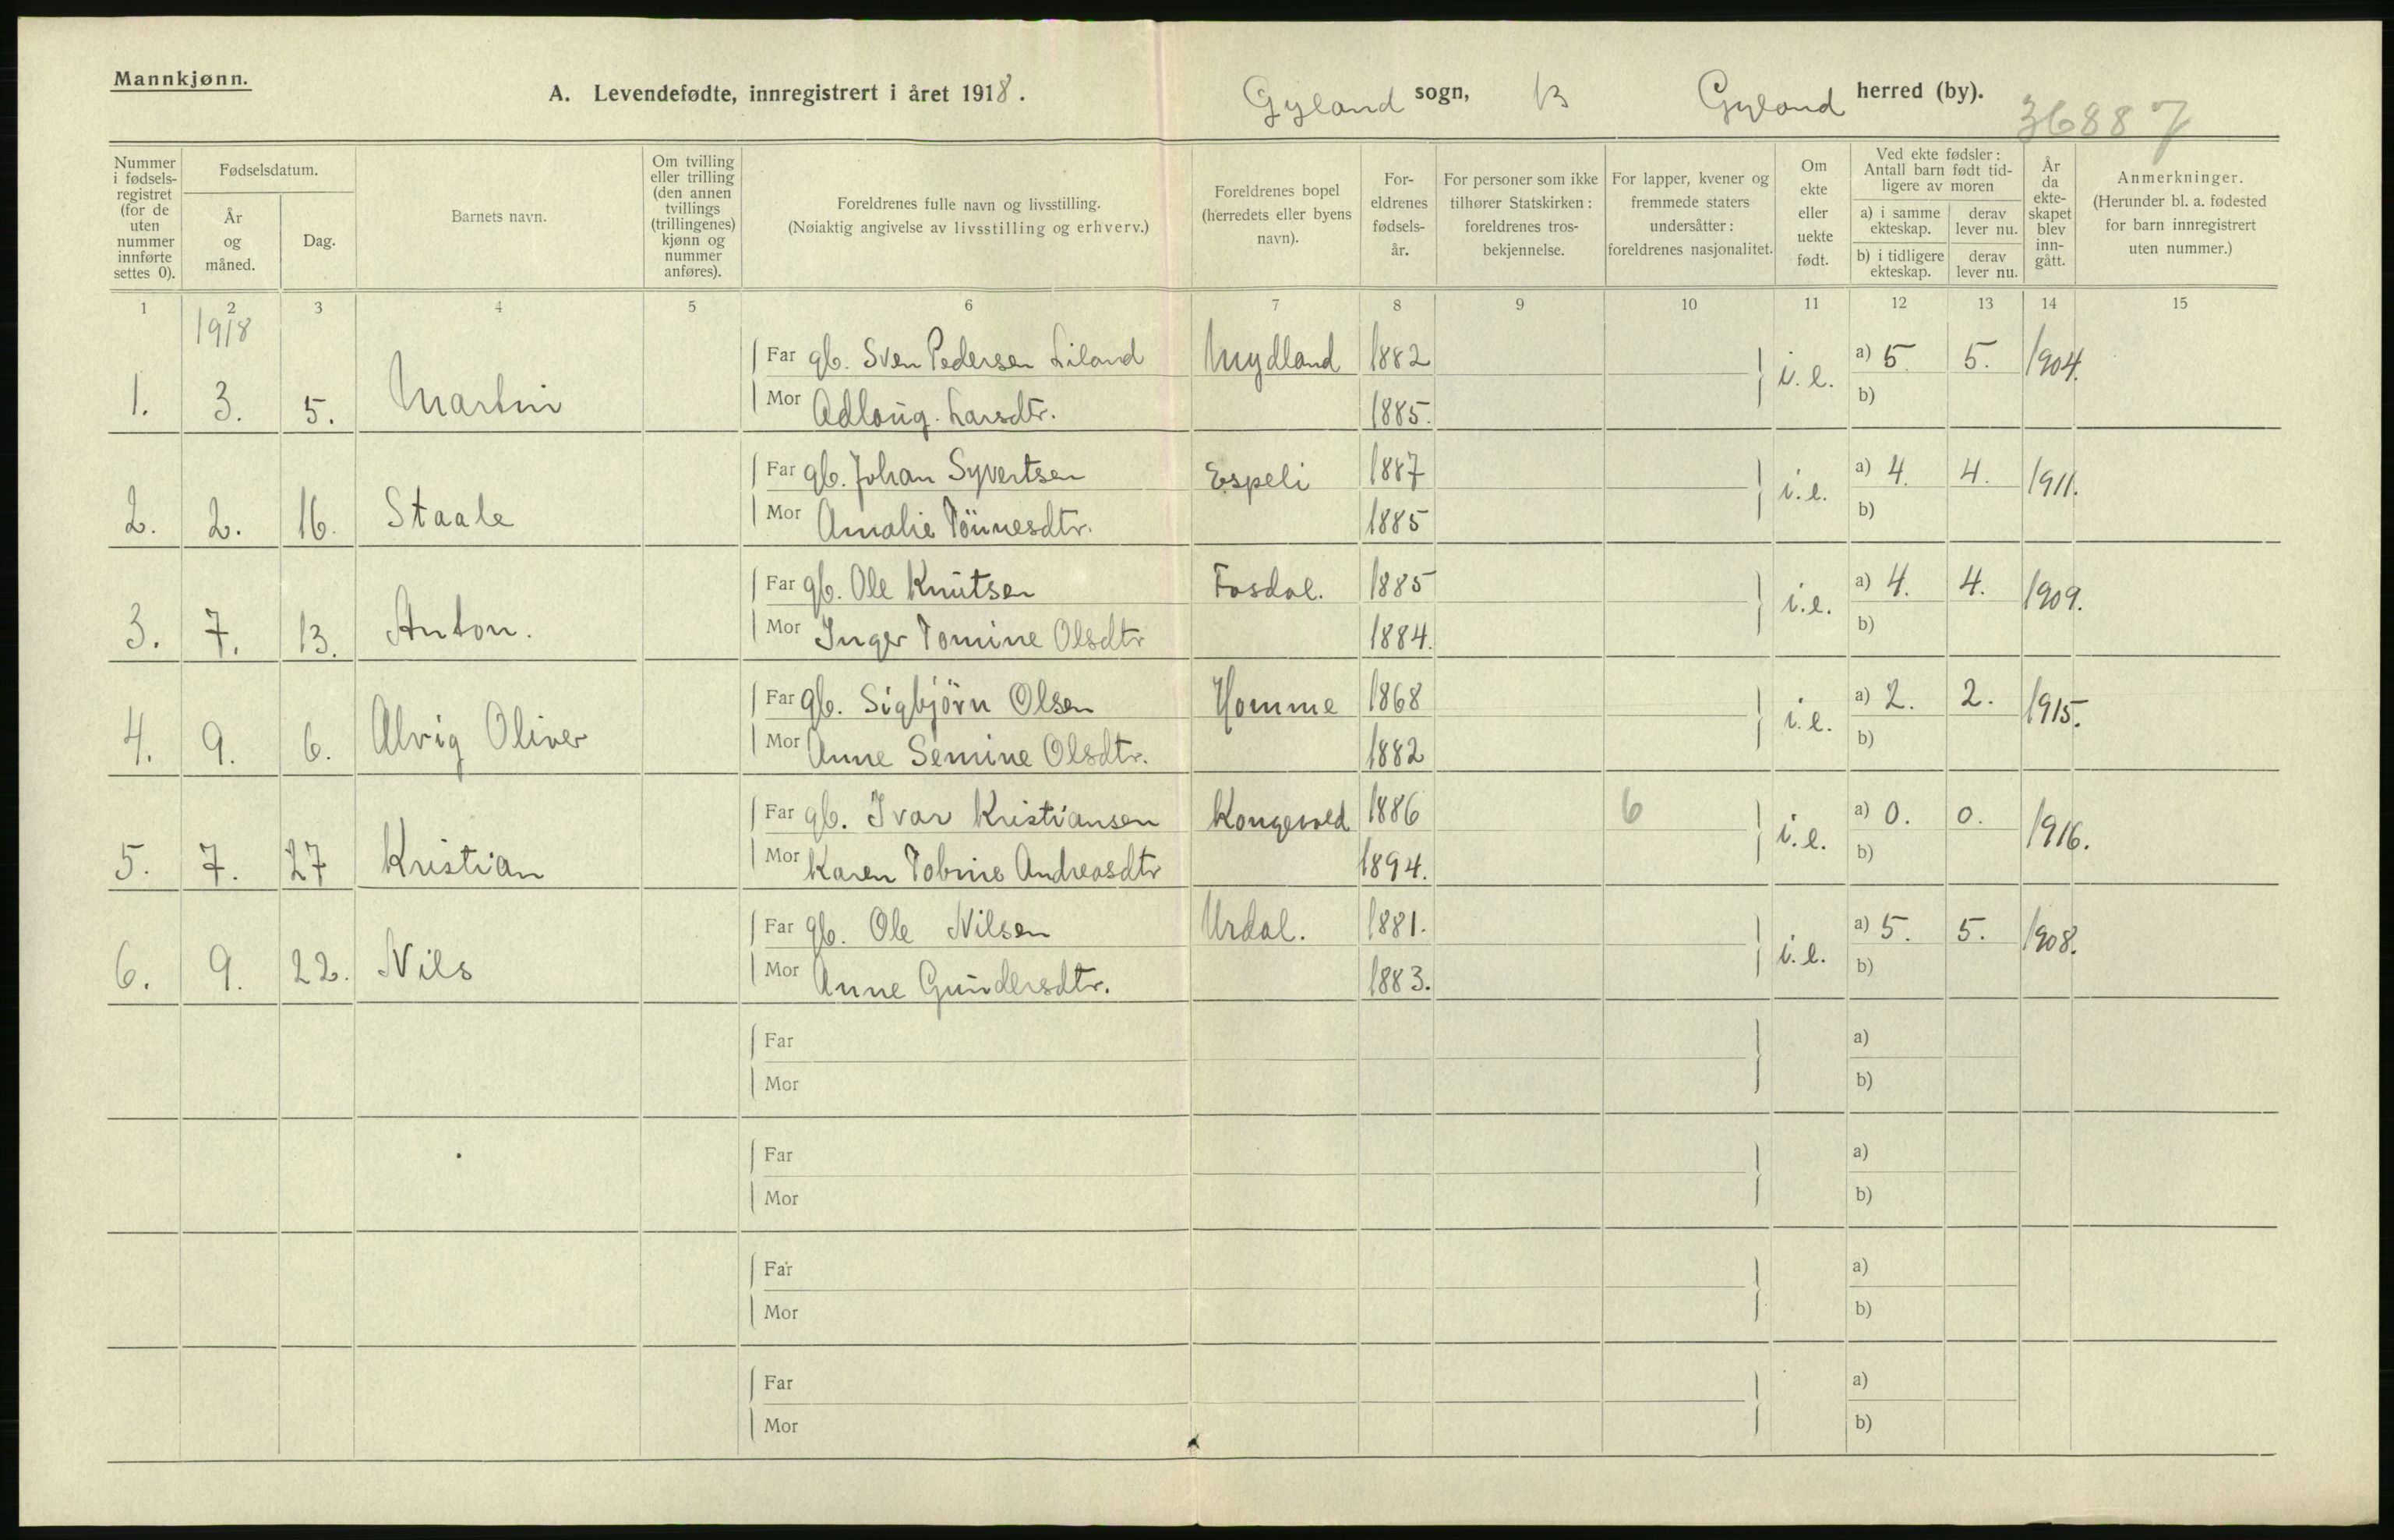 Mannkjønn.
A. Levendefødte, innregistrert i året 1918.
Gyland sogn, Gyland herred (by).
36887
Nummer i fødsels-registret (for de uten nummer innførte settes 0).
Fødselsdatum.
År og måned.
Dag.
Barnets navn.
Om tvilling eller trilling (den annen tvillings (trillingenes) kjønn og nummer anføres).
Foreldrenes fulle navn og livsstilling.
(Nøiaktig angivelse av livsstilling og erhverv.)
Foreldrenes bopel (herredets eller byens navn).
For-eldrenes fødsels-år.
For personer som ikke tilhører Statskirken: foreldrenes tros-bekjennelse.
For lapper, kvener og fremmede staters undersåtter: foreldrenes nasjonalitet.
Om ekte eller uekte født.
Ved ekte fødsler: Antall barn født tid-ligere av moren
a) i samme ekteskap.
derav lever nu.
b) i tidligere ekteskap.
derav lever nu.
År da ekte-skapet blev inn-gått.
Anmerkninger.
(Herunder bl. a. fødested for barn innregistrert uten nummer.)
1 2 3 4 5 6 7 8 9 10 11 12 13 14 15
1918
Far gb. Sven Pedersen Liland Mydland 1882 a) 5 5. 1904.
1. 3. 5. Martin Mor Adloug. Larsdtr. 1885. i.e. b)
Far gb. Johan Syvertsen Espeli 1887 a) 4. 4. 1911.
2. 2. 16. Staale Mor Amalie Tönnesdtr. 1885 i.e. b)
Far gb. Ole Knutsen Fosdal. 1885 a) 4. 4. 1909.
3. 7. 13. Anton. Mor Inger Tomine Olsdtr 1884. i.e. b)
Far gb. Sigbjörn Olsen Homme 1868 a) 2. 2. 1915.
4. 9. 6. Alvig Oliver Mor Anne Semine Olsdtr. 1882 i.e. b)
Far gb. Ivar Kristiansen Kongevold 1886 6 a) 0. 0. 1916.
5. 7. 27 Kristian Mor Karen Tobine Andreasdtr 1894. i.e. b)
Far gb. Ole Nilsen Urdal. 1881. a) 5. 5. 1908.
6. 9. 22. Nils Mor Anne Gundersdtr. 1883. i.e. b)
Far a)
Mor b)
Far a)
Mor b)
Far a)
Mor b)
Far a)
Mor b)